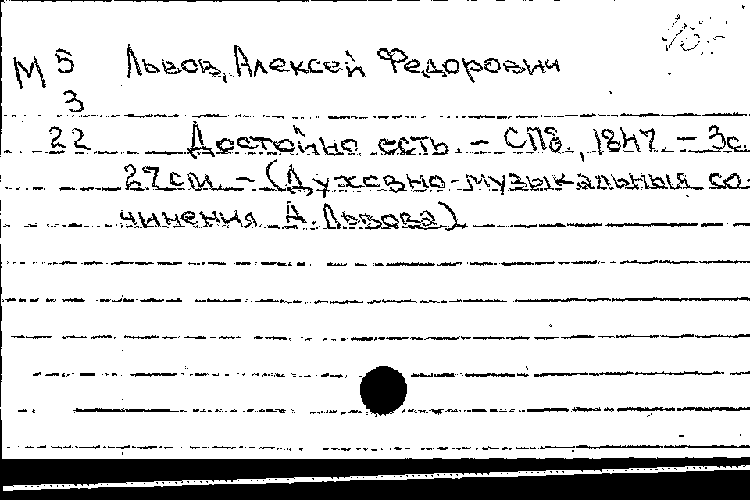 М 5 Львов, Алексей Федорович
3
22 Достойно есть. – СПб., 1847. – 3с.
27см. – (Духовно-музыкальныя со-
чинения А. Львова)